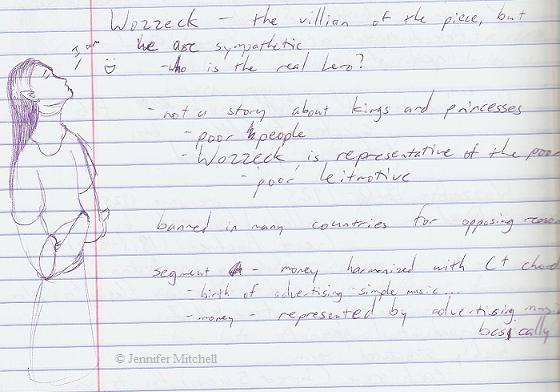 Wozzeck - the villian of the piece, but
we are sympathetic
I am
- who is the real hero?
- not a story about kings and princesses
- poor people
- Wozzeck is representative of the poor
- "poor" leitmotive
banned in many countries for opposing
segment A - money harmonized with C+ chord
- birth of advertising - simple music...
- money - represented by advertising
basically
© Jennifer Mitchell